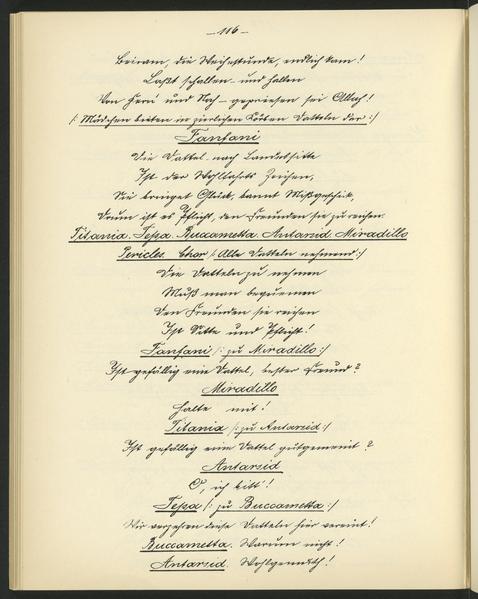 - 116 -
Beiram, die Weihestunde, endlich kam!
Laßt schallen - und hallen
Von Fern' und Nah - gepriesen sei Allah!
/: Mädchen bieten in zierlichen Körben Datteln dar :/
Fanfani
Die Dattel nach Landessitte
Ist der Wohlfahrt Zeichen,
Sie bringet Glück, bannt Mißgeschick,
Drum ist es Pflicht, den Freunden sie zu reichen.
Titania. Tepa. Buccametta. Antarsid. Miradillo
Pericles. Chor /: Alle Datteln nehmend :/
Die Datteln zu nehmen
Muß man bequemen
Den Freunden sie reichen
Ist Sitte und Pflicht!
Fanfani /: zu Miradillo :/
Ist gefällig eine Dattel, bester Freund?
Miradillo
Halte mit!
Titania /: zu Antarsid :/
Ist gefällig eine Dattel gutgemeint?
Antarsid
O, ich bitt'!
Tepa /: zu Buccametta :/
Wir verzehren diese Datteln hier vereint!
Buccametta. Warum nicht!
Antarsid. Wohlgemuth!